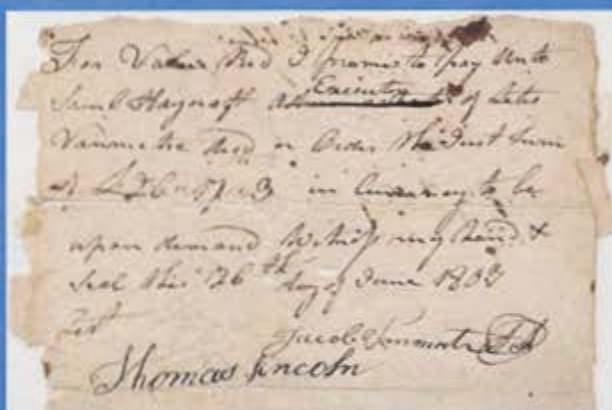 For Value Recd I promise to pay unto
Saml Haycraft Executor of
Vanmetre decd or Order the Just Sum
of in Currency to be
upon demand Witness my hand &
Seal this 26th day of June 1803
Test
Jacob Vanmatre
Thomas Lincoln